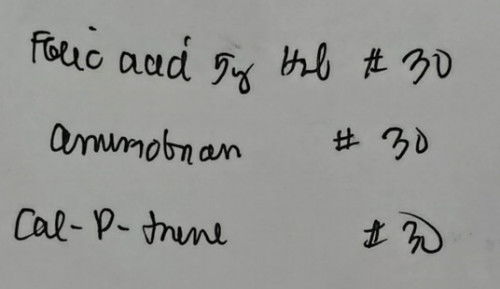 Folic acid 5g tab # 30
# 30
Cal-P- # 30